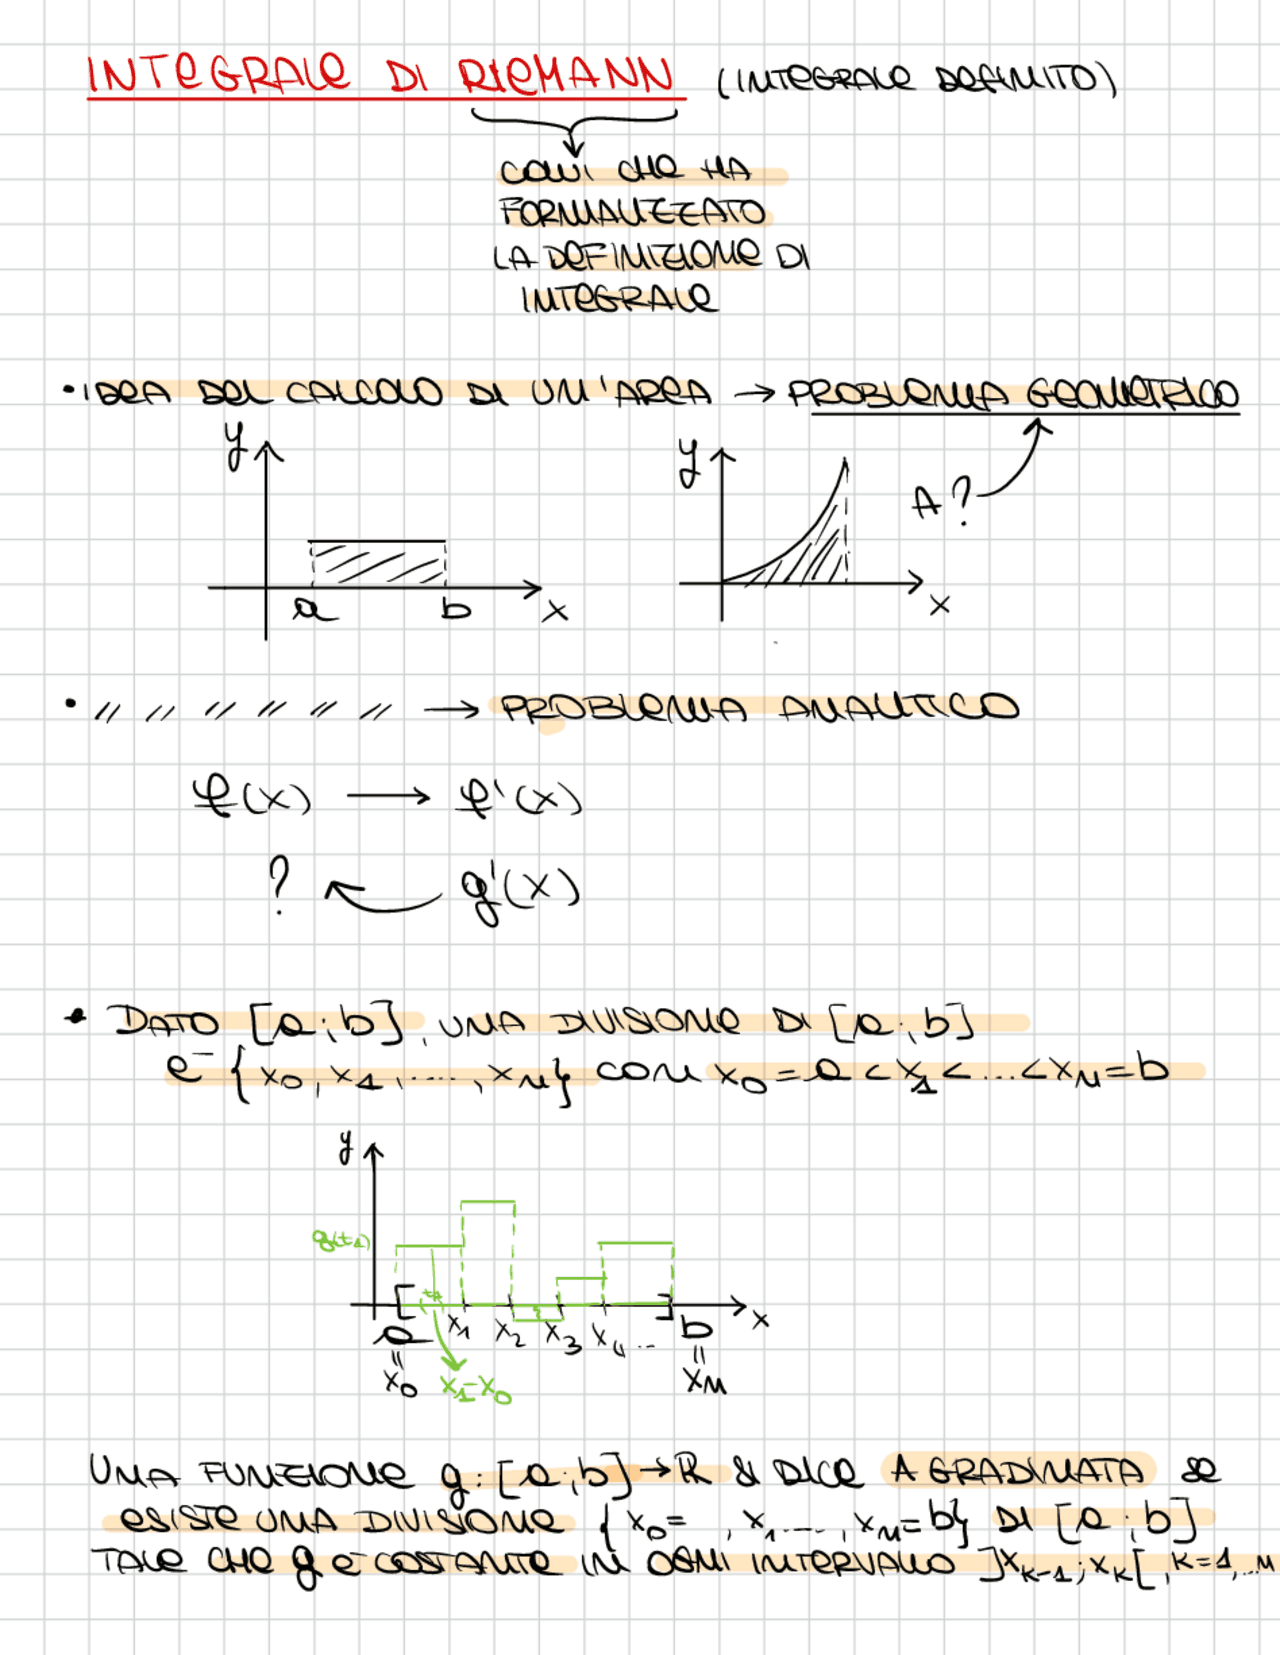 INTEGRALE DI RIEMANN (INTEGRALE DEFINITO)
COLUI CHE HA
FORMALIZZATO
LA DEFINIZIONE DI
INTEGRALE
• IDEA DEL CALCOLO DI UN'AREA → PROBLEMA GEOMETRICO
y
a b x
y
x
A?
• // // // // // // → PROBLEMA ANALITICO
φ(x) → φ'(x)
? ← g'(x)
• DATO [a;b], UNA DIVISIONE DI [a;b]
è {x₀, x₁, ...., xₙ} CON x₀ = a < x₁ < ... < xₙ = b
y
g(t₁)
[ t₁ ] x
a x₁ x₂ x₃ x₄ ... b
= =
x₀ x₁-x₀ xₙ
UNA FUNZIONE g: [a;b] → R SI DICE A GRADINATA SE
ESISTE UNA DIVISIONE {x₀= , x₁ ...., xₙ=b} DI [a;b]
TALE CHE g È COSTANTE IN OGNI INTERVALLO ]xₖ₋₁; xₖ[, K=1,...n